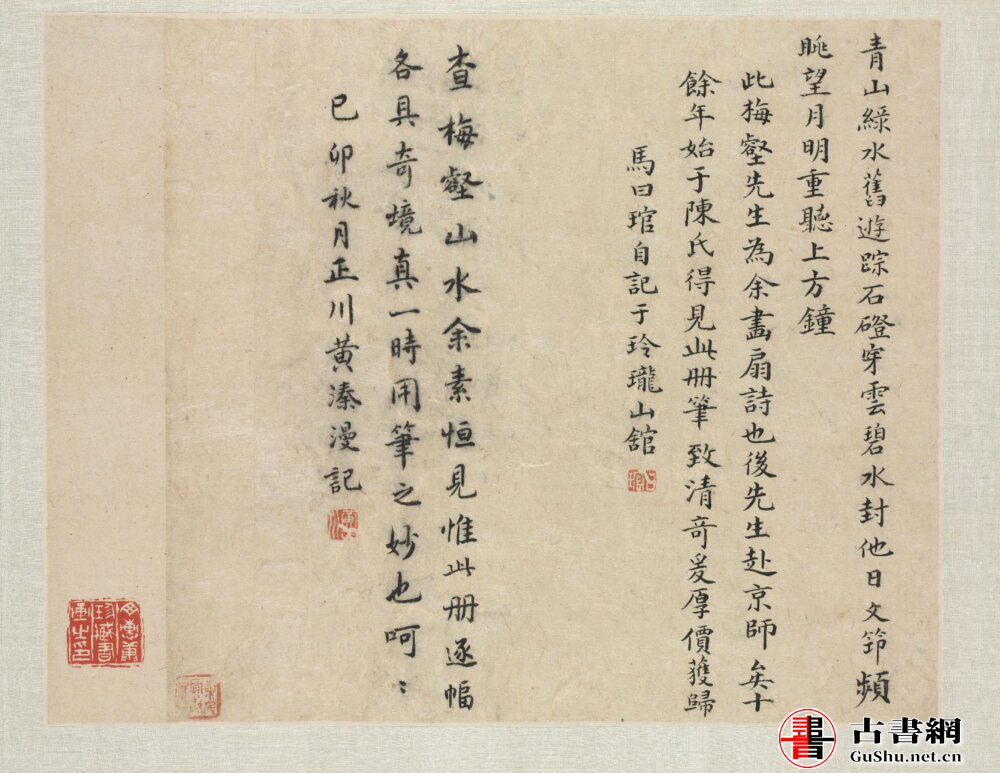 青山綠水舊遊踪石磴穿雲碧水封他日文笻頻
眺望月明重聽上方鐘
此梅壑先生為余畫扇詩也後先生赴京師矣十
餘年始于陳氏得見此册筆致清奇爰厚價獲歸
馬曰琯自記于玲瓏山舘
查梅壑山水余素恒見惟此册逐幅
各具奇境真一時用筆之妙也呵〻
已卯秋月正川黃溱漫記
古書網
GuShu.net.cn